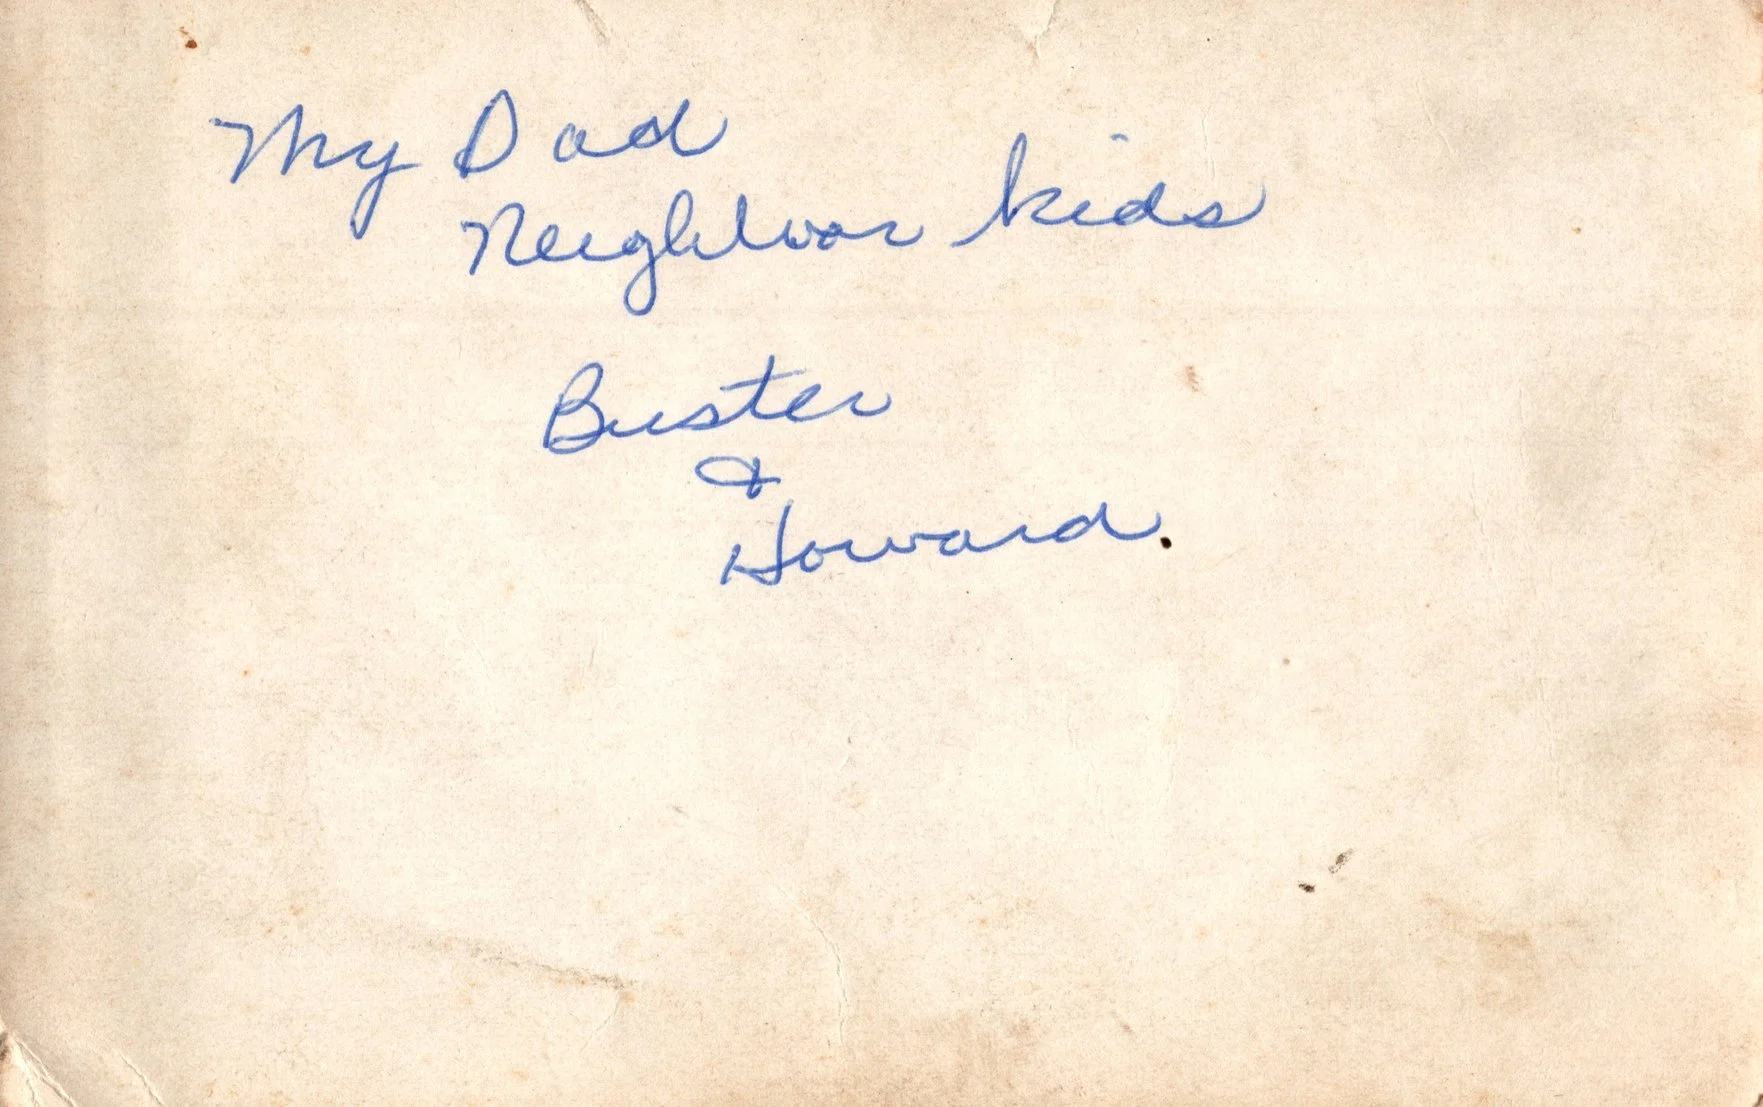 My Dad
Neighbor kids
Buster
&
Howard.